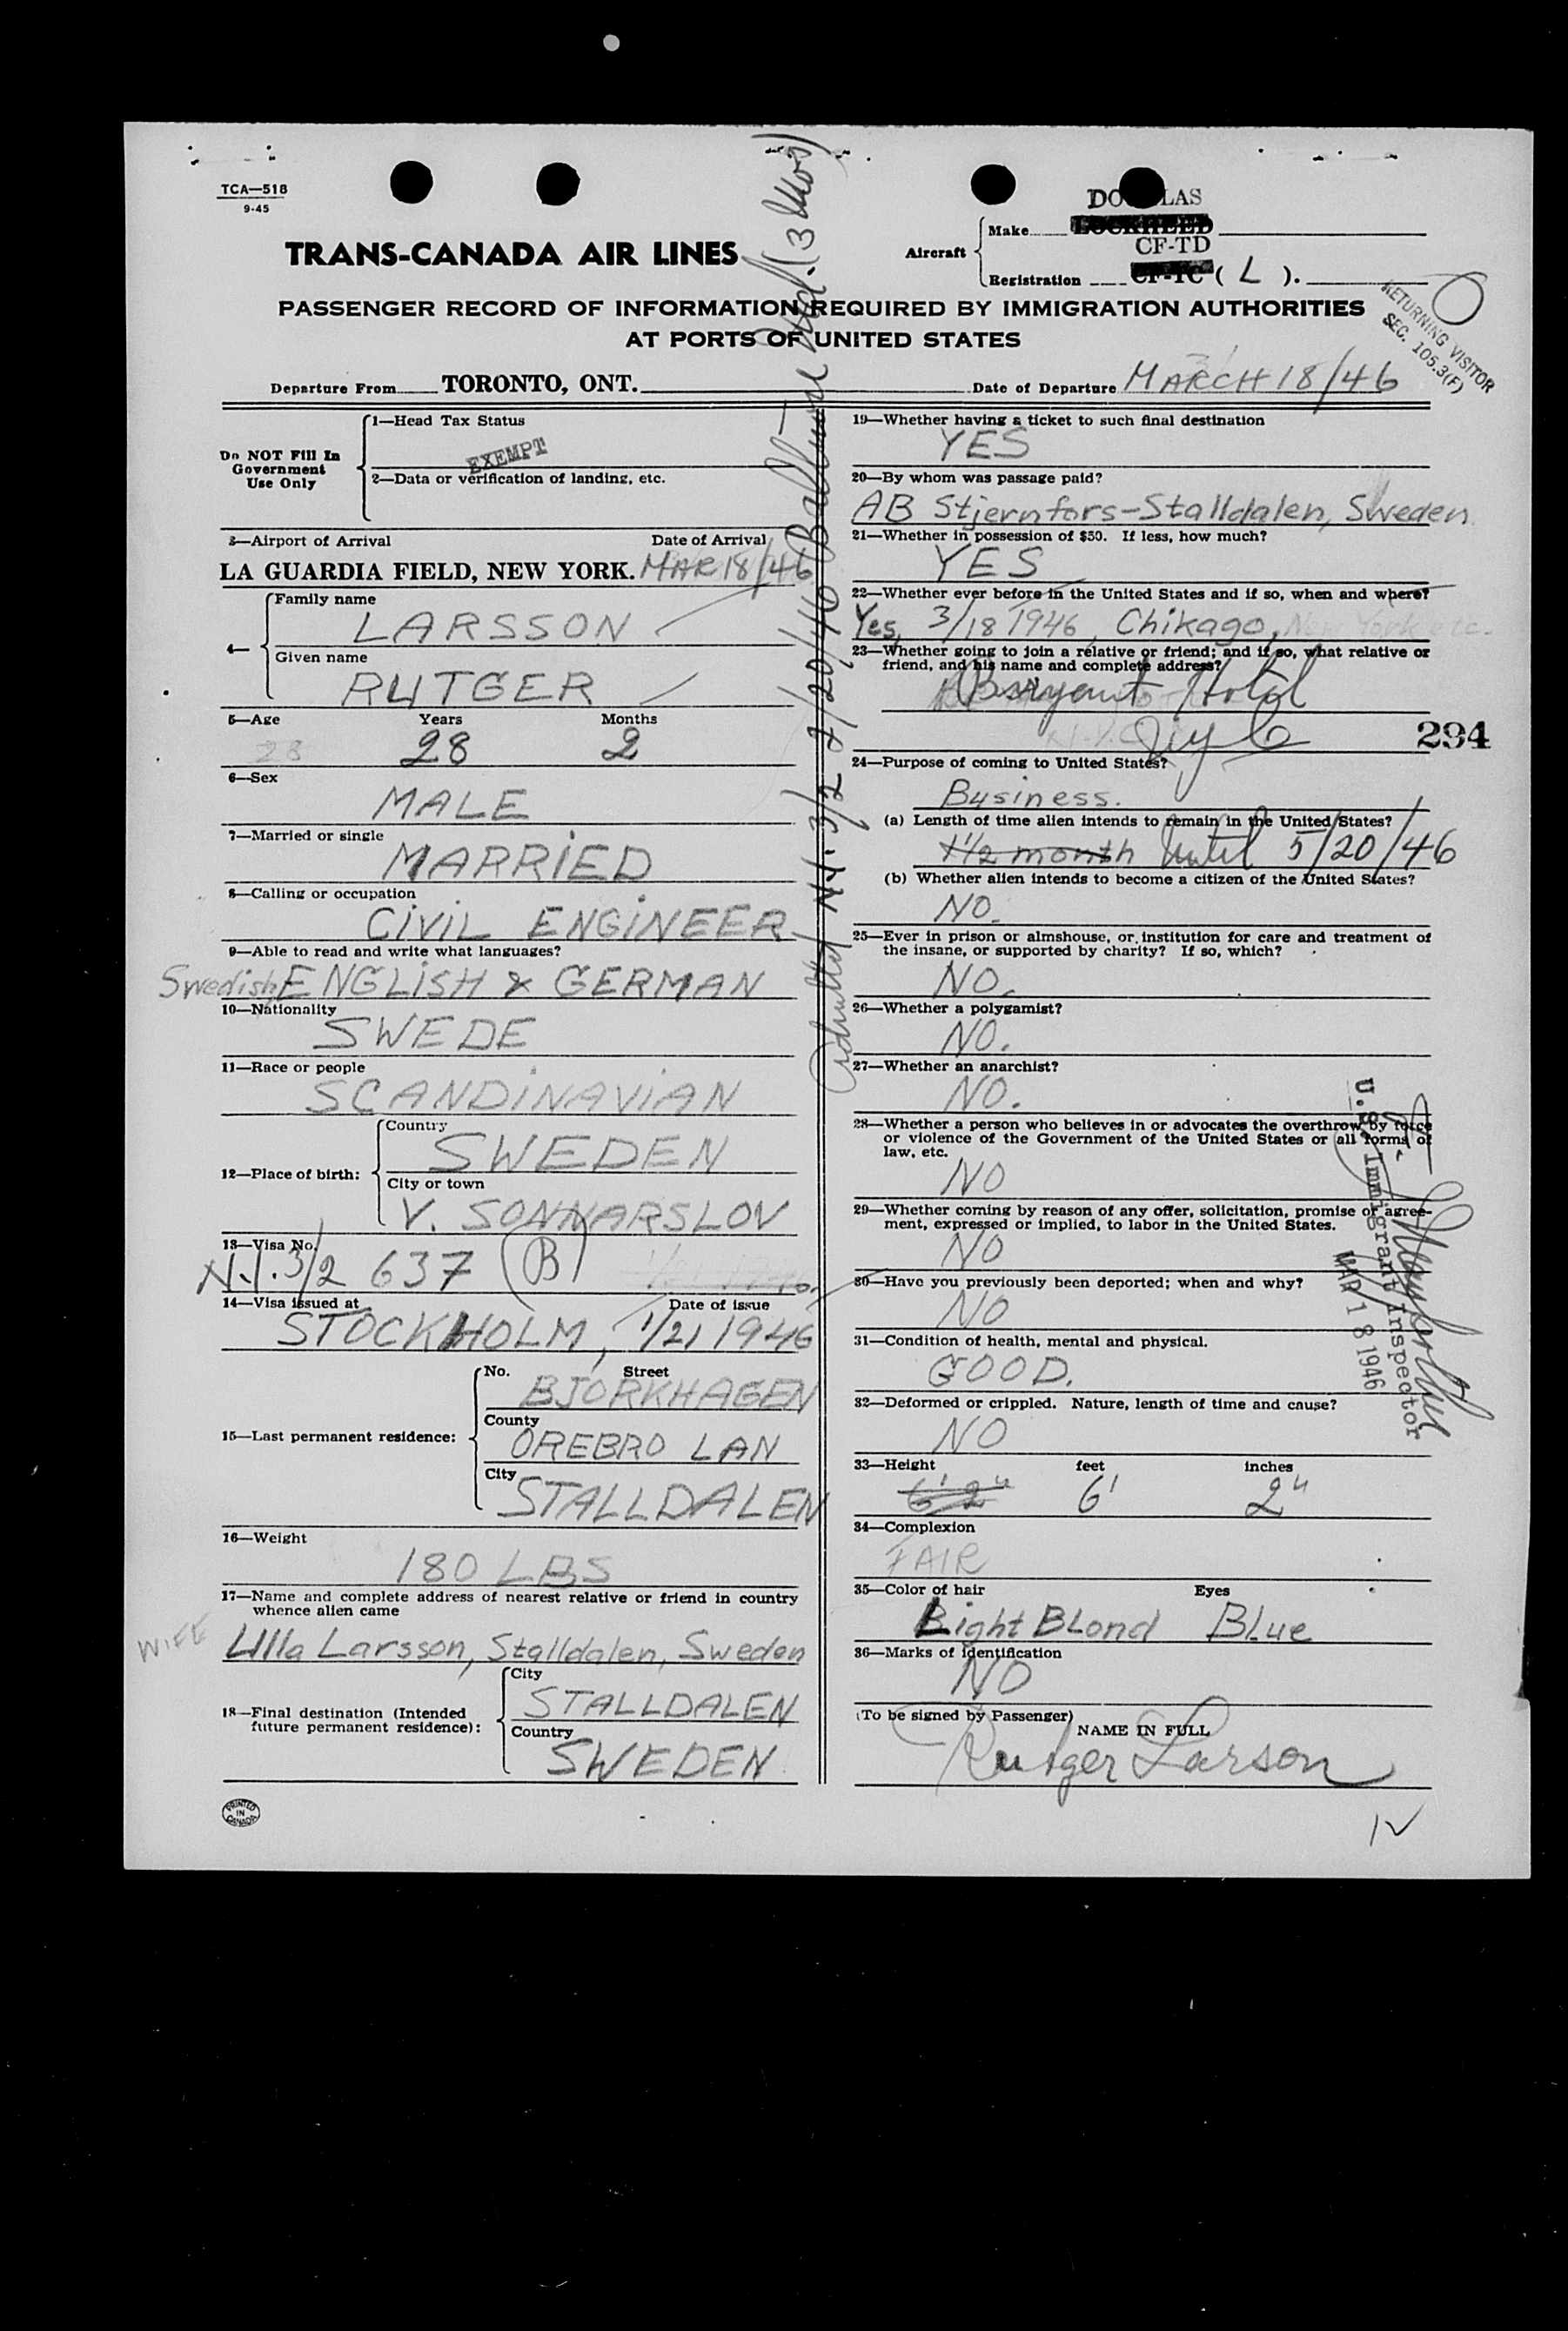 TCA—518
9-45
TRANS-CANADA AIR LINES
Aircraft
Make
DOUGLAS
LOCKHEED
CF-TD
Registration CF-TC ( L ).
PASSENGER RECORD OF INFORMATION REQUIRED BY IMMIGRATION AUTHORITIES
AT PORTS OF UNITED STATES
RETURNING VISITOR
SEC. 105.3(F)
Departure From TORONTO, ONT. Date of Departure MARCH 18/46
Do NOT Fill In
Government
Use Only
1—Head Tax Status
EXEMPT
2—Data or verification of landing, etc.
3—Airport of Arrival Date of Arrival
LA GUARDIA FIELD, NEW YORK. MAR 18/46
4—
Family name
LARSSON
Given name
RUTGER
5—Age Years Months
28 28 2
6—Sex
MALE
7—Married or single
MARRIED
8—Calling or occupation
CIVIL ENGINEER
9—Able to read and write what languages?
Swedish, ENGLISH & GERMAN
10—Nationality
SWEDE
11—Race or people
SCANDINAVIAN
12—Place of birth:
Country
SWEDEN
City or town
V. SONNARSLOV
13—Visa No.
N.I. 3/2 637 (B)
14—Visa issued at Date of issue
STOCKHOLM, 1/21 1946
15—Last permanent residence:
No. Street
BJORKHAGEN
County
OREBRO LAN
City
STALLDALEN
16—Weight
180 LBS
17—Name and complete address of nearest relative or friend in country
whence alien came
WIFE Ulla Larsson, Stalldalen, Sweden
18—Final destination (Intended
future permanent residence):
City
STALLDALEN
Country
SWEDEN
PRINTED
IN
CANADA
Admitted N.I. 3/2 2/20/46 Baltimore Md. (3 Mos)
19—Whether having a ticket to such final destination
YES
20—By whom was passage paid?
AB Stjernfors-Stalldalen, Sweden
21—Whether in possession of $50. If less, how much?
YES
22—Whether ever before in the United States and if so, when and where?
Yes, 3/18 1946, Chikago, New York etc.
23—Whether going to join a relative or friend; and if so, what relative or
friend, and his name and complete address?
Bryant Hotel
NYC
294
24—Purpose of coming to United States?
Business.
(a) Length of time alien intends to remain in the United States?
1 1/2 month Until 5/20/46
(b) Whether alien intends to become a citizen of the United States?
NO.
25—Ever in prison or almshouse, or institution for care and treatment of
the insane, or supported by charity? If so, which?
NO.
26—Whether a polygamist?
NO.
27—Whether an anarchist?
NO.
28—Whether a person who believes in or advocates the overthrow by force
or violence of the Government of the United States or all forms of
law, etc.
NO
29—Whether coming by reason of any offer, solicitation, promise or agree-
ment, expressed or implied, to labor in the United States.
NO
30—Have you previously been deported; when and why?
NO
31—Condition of health, mental and physical.
GOOD.
32—Deformed or crippled. Nature, length of time and cause?
NO
33—Height feet inches
6' 2" 6' 2"
34—Complexion
FAIR
35—Color of hair Eyes
Light BLond BLue
36—Marks of identification
NO
(To be signed by Passenger)
NAME IN FULL
Rutger Larson
U.S. Immigrant Inspector
MAR 18 1946